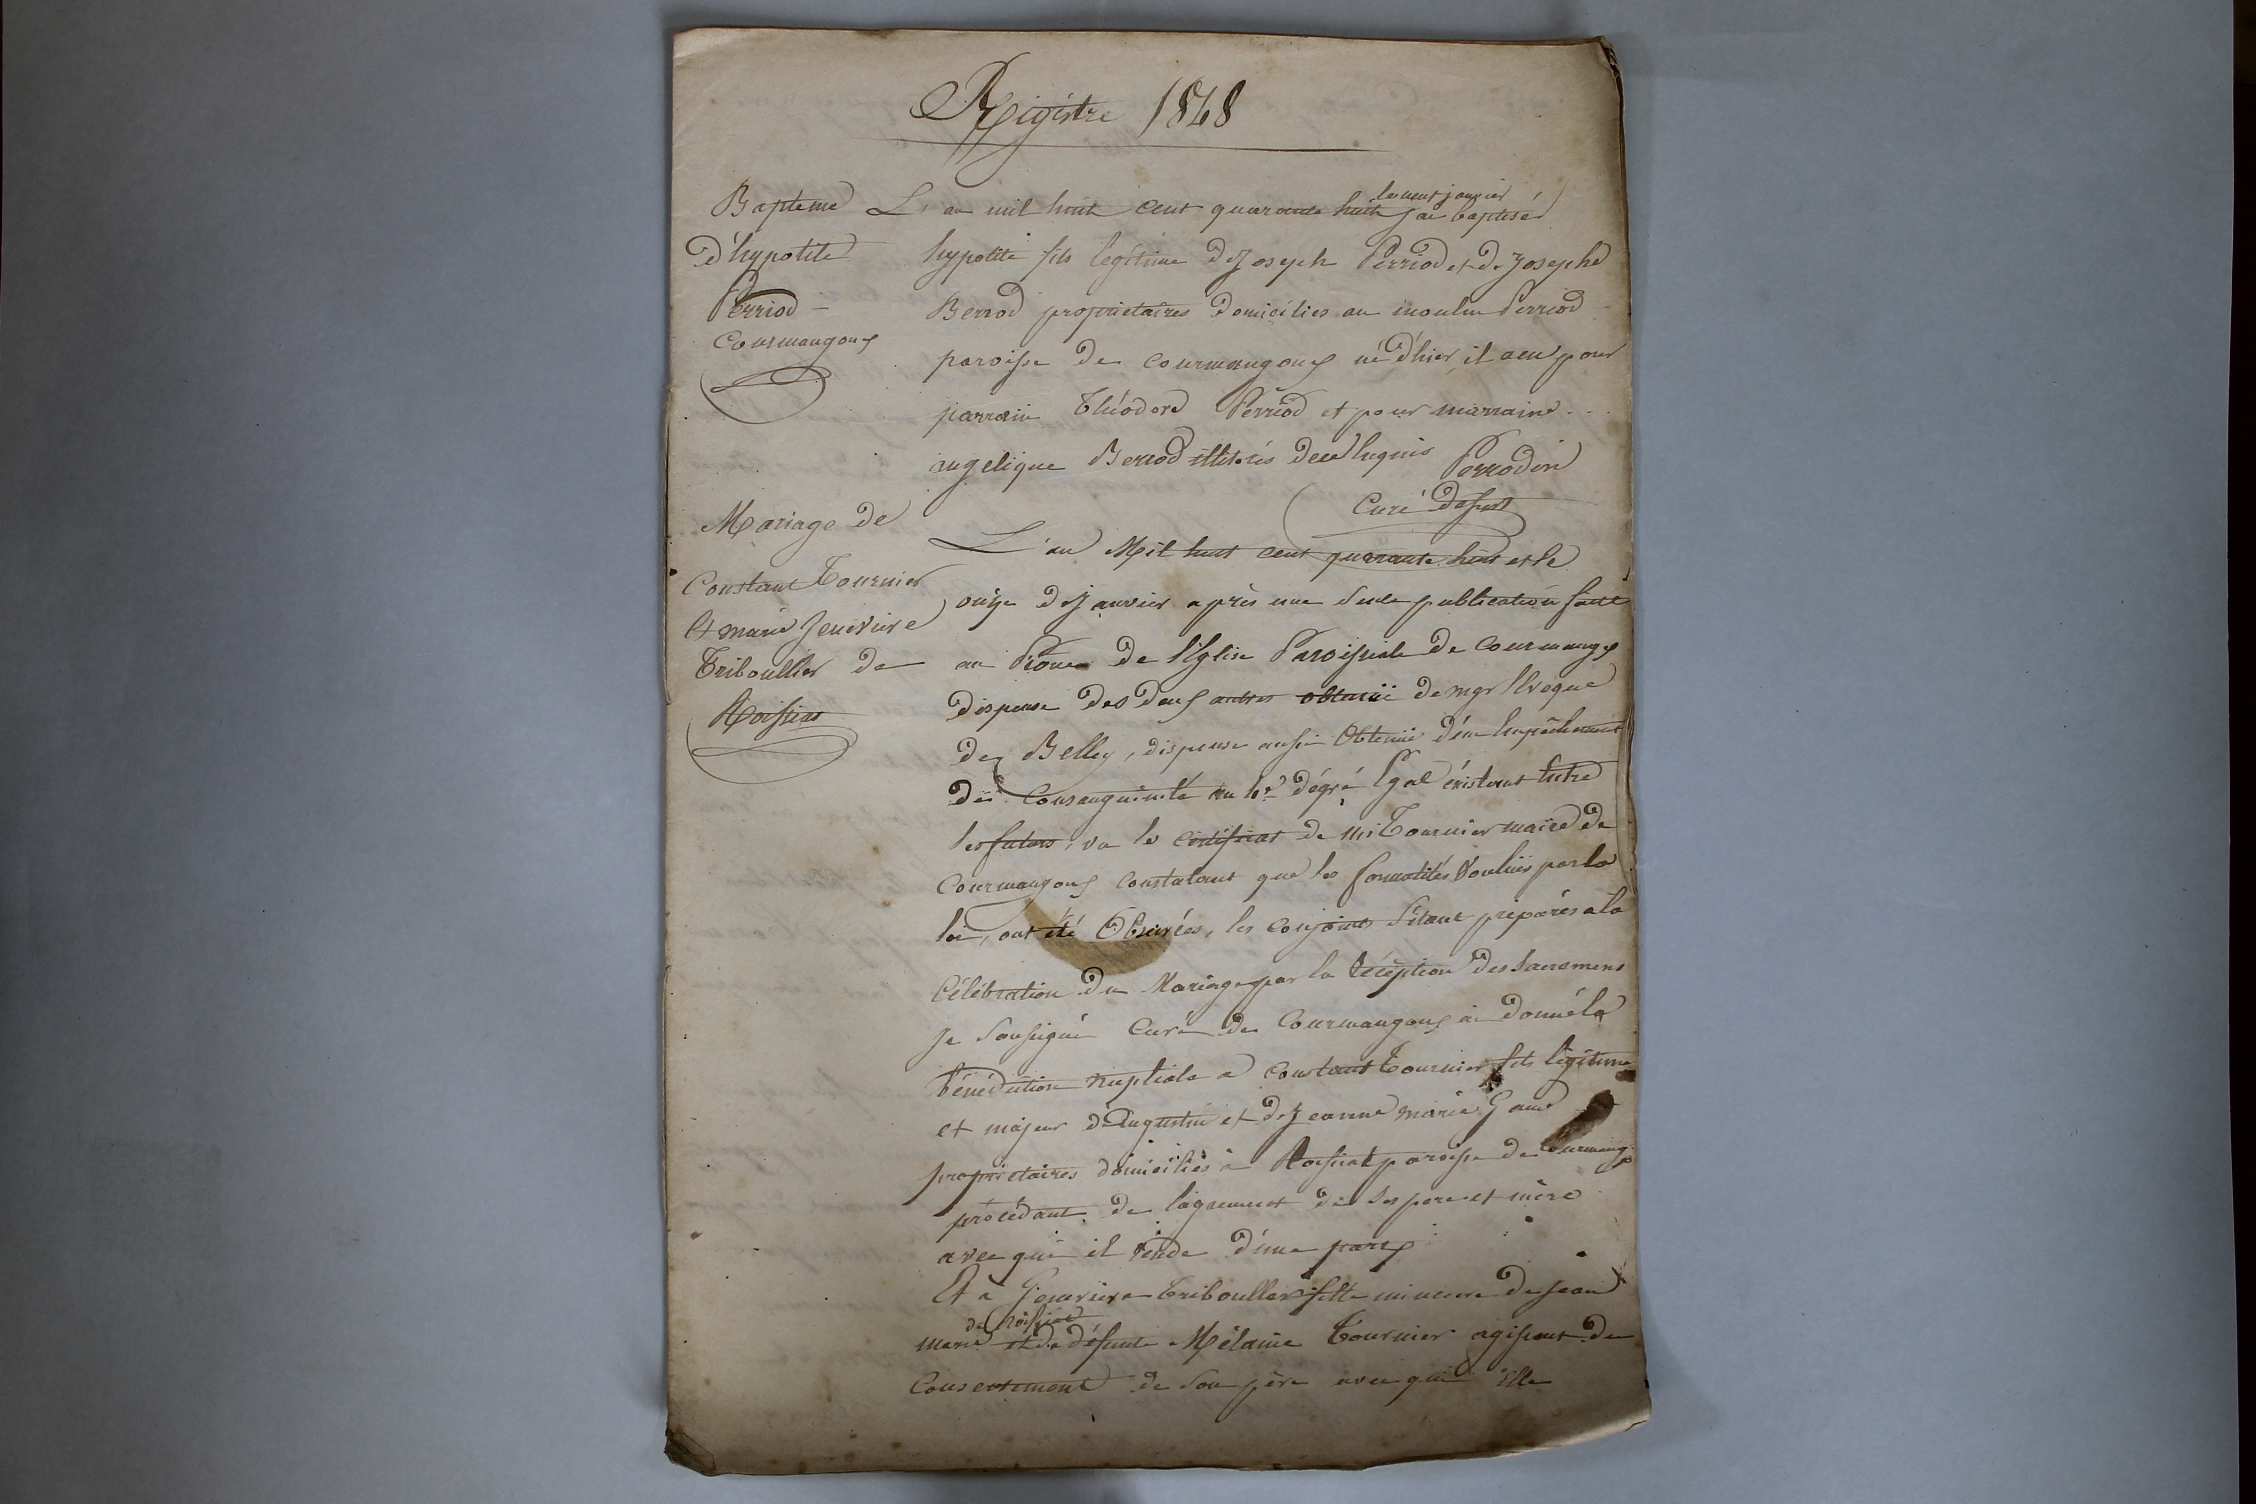 Régistre 1848
Bapteme
d'hypolite
Perriod -
Courmangoux
L'an mil huit cent quarante huit le neuf janvier j'ai baptisé
hypolite fils légitime de Joseph Perriod et de Josephe
Berrod propriétaires domiciliés au moulin Perriod
paroisse de Courmangoux né d'hier, il a eu pour
parrain Théodore Perriod et pour marraine
angelique Berrod illitérés de ce enquis Perrodin
Curé
Mariage de
Constant Tournier
et marie Jenevieve
Triboullier de
Roissiat
L'an Mil huit cent quarante huit et le
onze de Janvier après une seule publication faite
au Prône de l'Eglise Paroissiale de Courmangx
dispense des deux autres obtenüe de mgr l'Evêque
de Belley, dispense aussi Obtenüe d'un Empêchement
de Consanguinité au 4e dégré Egal éxistant Entre
les futurs, vu le certificat de mr Tournier maire de
Courmangoux constatant que les formalités Voulües par la
loi, ont été Observées, les conjoints s'étant préparés a la
Célébration du Mariage par la Réception des Sacremens
Je Soussigné Curé de Courmangoux ai donné la
bénédiction nuptiale a constant Tournier fils légitime
et majeur d'Augustin et de Jeanne marie
propriétaires domiciliés à Roissiat paroisse de Courmangx
procédant de l'agrement de ses pere et mère
avec qui il réside d'une part
Et a Genevieve Triboullier fille mineure de jean
marie de Roissiat et de défunte Mélanie Tournier agissant de
Consentement de son père avec qui elle